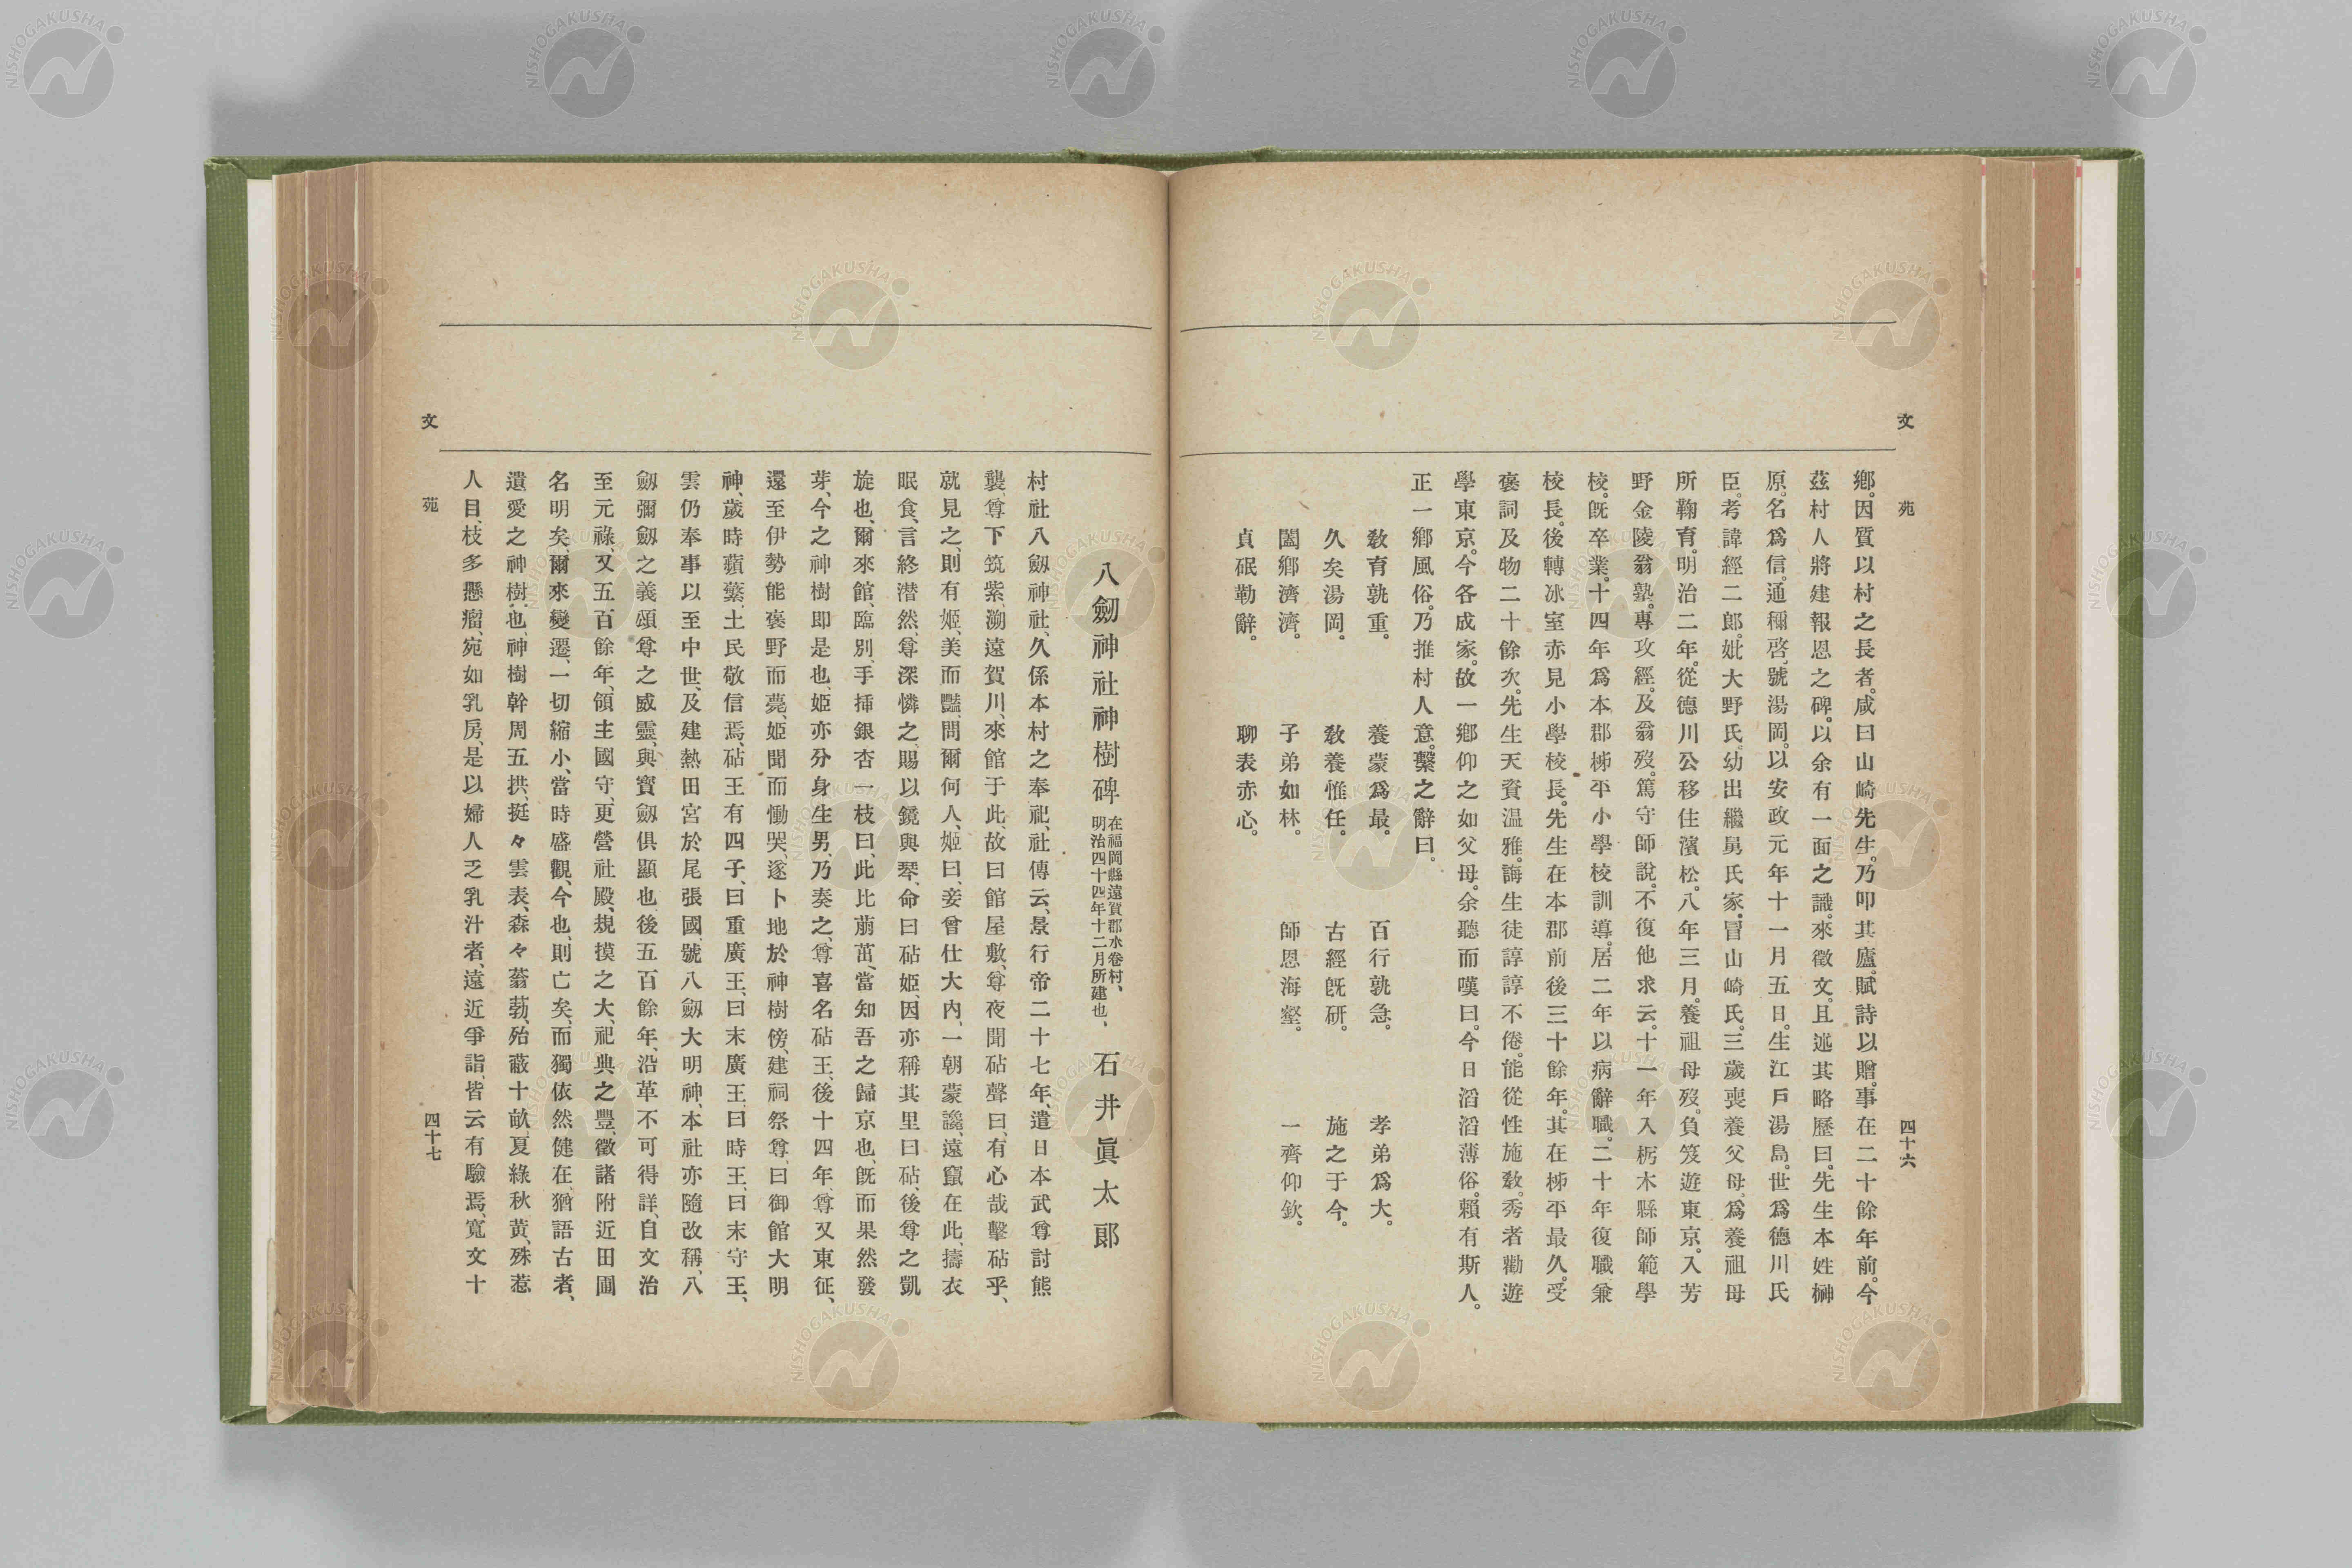 文苑
四十六
鄕。因質以村之長者。咸曰山崎先生。乃叩其廬。賦詩以贈。事在二十餘年前。今
茲村人將建報恩之碑。以余有一面之識。來徵文。且述其略歷曰。先生本姓榊
原。名爲信。通稱啓。號湯岡。以安政元年十一月五日。生江戶湯島。世爲德川氏
臣。考諱經二郎。妣大野氏。幼出繼舅氏家。冒山崎氏。三歲喪養父母。爲養祖母
所鞠育。明治二年。從德川公移住濱松。八年三月。養祖母歿。負笈遊東京。入芳
野金陵翁塾。專攻經。及翁歿。篤守師說。不復他求云。十一年入栃木縣師範學
校。旣卒業。十四年爲本郡𣑊平小學校訓導。居二年以病辭職。二十年復職兼
校長。後轉冰室赤見小學校長。先生在本郡前後三十餘年。其在𣑊平最久。受
褒詞及物二十餘次。先生天資溫雅。誨生徒諄諄不倦。能從性施敎。秀者勸遊
學東京。今各成家。故一鄕仰之如父母。余聽而嘆曰。今日滔滔薄俗。賴有斯人。
正一鄕風俗。乃推村人意。繫之辭曰。
敎育孰重。 養蒙爲最。 百行孰急。 孝弟爲大。
久矣湯岡。 敎養惟任。 古經旣硏。 施之于今。
闔鄕濟濟。 子弟如林。 師恩海壑。 一齊仰欽。
貞珉勒辭。 聊表赤心。
八劒神社神樹碑 在福岡縣遠賀郡水卷村、明治四十四年十二月所建也、 石井眞太郞
村社八劒神社、久係本村之奉祀、社傳云、景行帝二十七年、遣日本武尊討熊
襲、尊下筑紫、溯遠賀川、來館于此、故曰館屋敷、尊夜聞砧聲曰、有心哉擊砧乎、
就見之、則有姬、美而豔、問爾何人、姬曰、妾曾仕大內、一朝蒙讒、遠竄在此、擣衣
眠食、言終潸然、尊深憐之、賜以鏡與琴、命曰砧姬、因亦稱其里曰砧、後尊之凱
旋也、爾來館、臨別、手揷銀杏一枝曰、此比萠茁、當知吾之歸京也、旣而果然發
芽、今之神樹卽是也、姬亦分身生男、乃奏之、尊喜名砧王、後十四年、尊又東征、
還至伊勢能褒野而薨、姬聞而慟哭、遂卜地於神樹傍、建祠祭尊、曰御館大明
神、歲時蘋蘩、土民敬信焉、砧王有四子、曰重廣王、曰末廣王、曰時王、曰末守王、
雲仍奉事以至中世、及建熱田宮於尾張國、號八劒大明神、本社亦隨改稱、八
劒彌劒之義、頌尊之威靈、與寶劒俱顯也後五百餘年、沿革不可得詳、自文治
至元祿、又五百餘年、領主國守、更營社殿、規摸之大、祀典之豐、徵諸附近田圃
名明矣、爾來變遷、一切縮小、當時盛觀、今也、則亡矣、而獨依然健在、猶語古者、
遺愛之神樹也、神樹幹周五拱、挺々雲表、森々蓊勃、殆蔽十畝、夏綠秋黃、殊惹
人目、枝多懸瘤、宛如乳房、是以婦人乏乳汁者、遠近爭詣、皆云有驗焉、寬文十
文苑
四十七
NISHOGAKUSHA